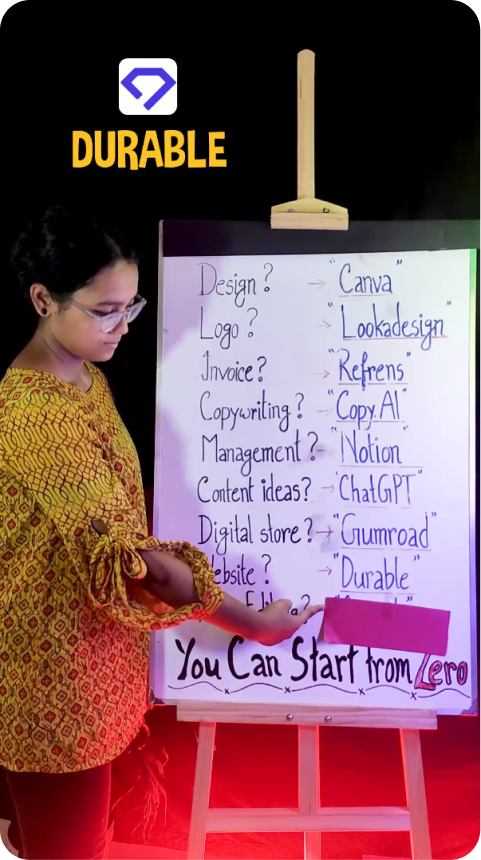 DURABLE
Design? → "Canva"
Logo? → "Lookadesign"
Invoice? → "Refrens"
Copywriting? → "Copy.AI"
Management? → "Notion"
Content ideas? → "ChatGPT"
Digital store? → "Gumroad"
ebsite? → "Durable"
You Can Start from Zero